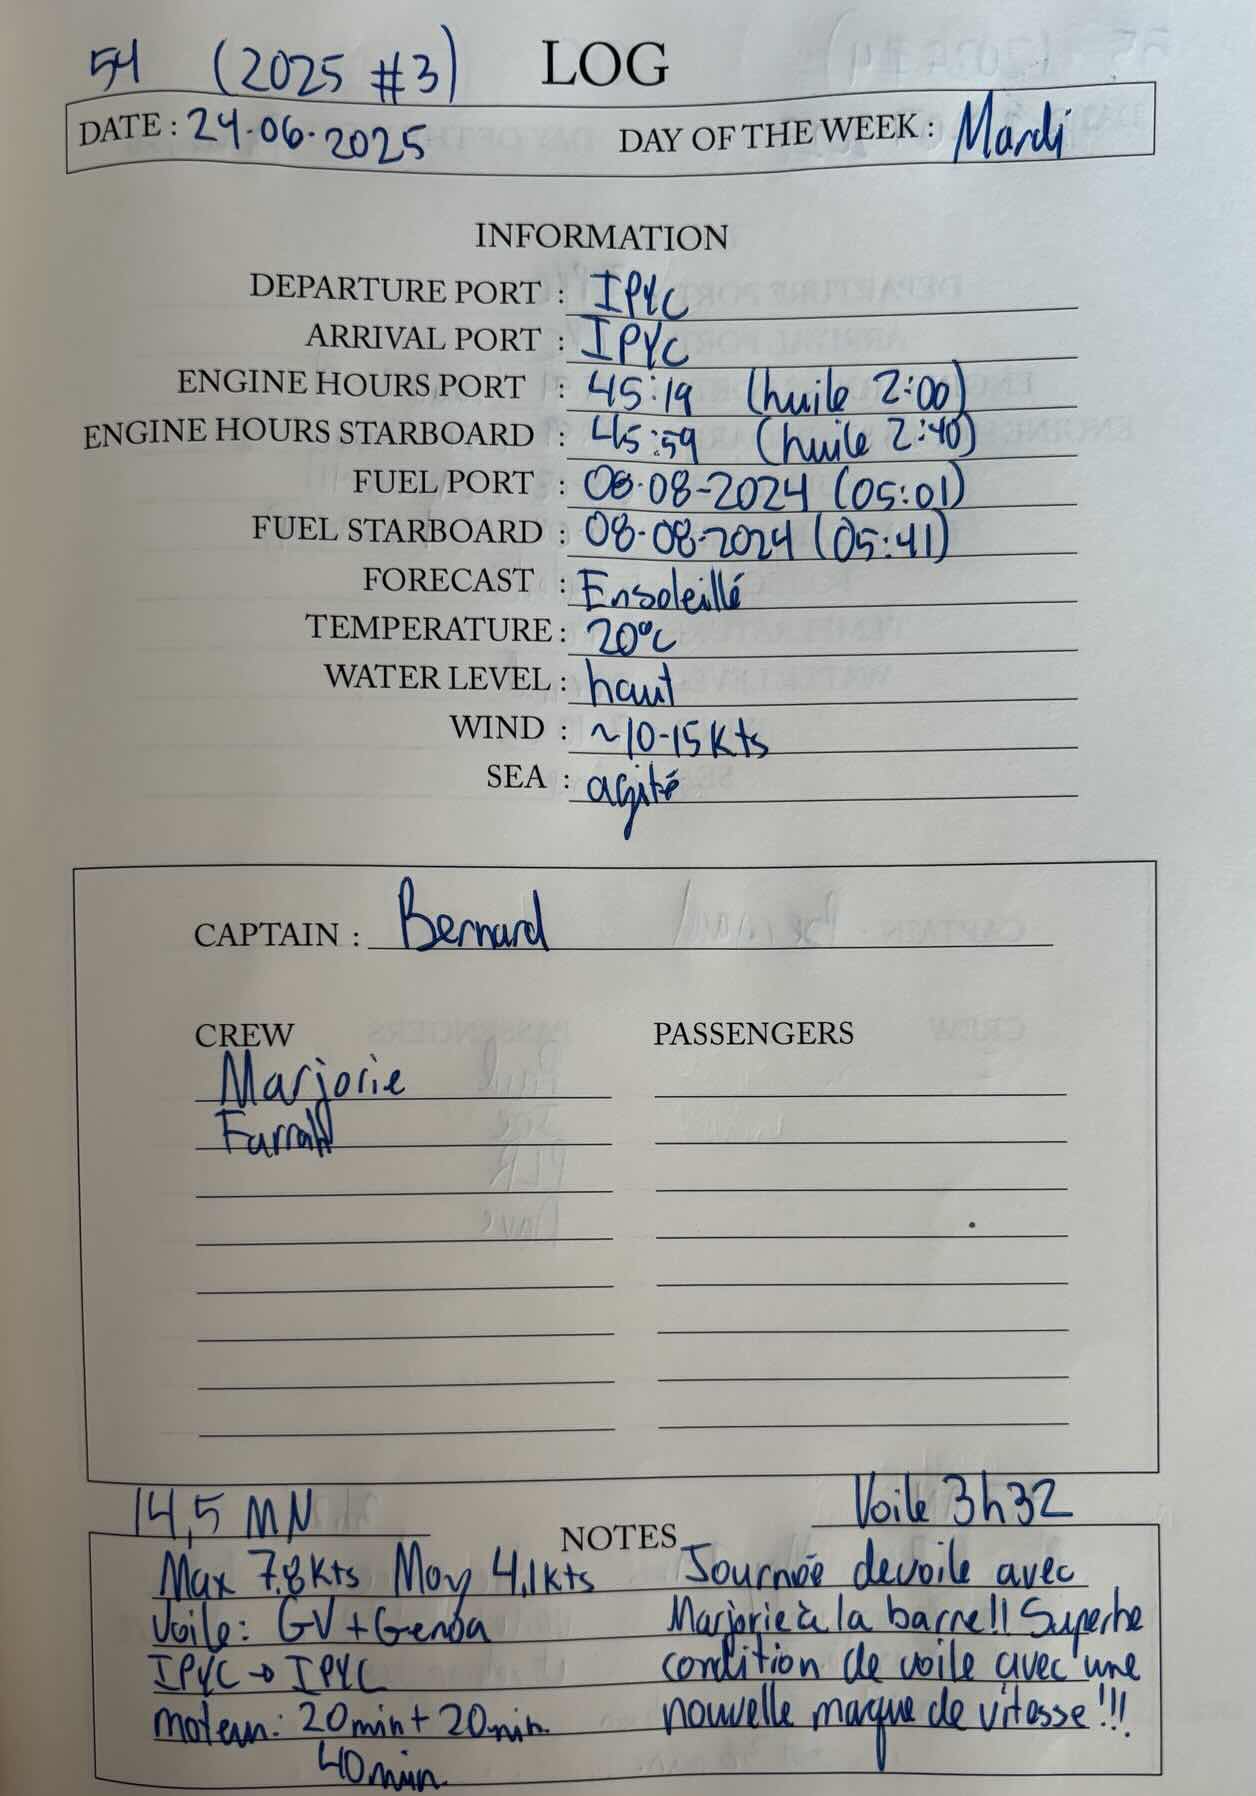 54 (2025 #3) LOG
DATE : 24.06.2025 DAY OF THE WEEK : Mardi
INFORMATION
DEPARTURE PORT : IPYC
ARRIVAL PORT : IPYC
ENGINE HOURS PORT : 45:19 (huile 2:00)
ENGINE HOURS STARBOARD : 45:59 (huile 2:40)
FUEL PORT : 08-08-2024 (05:01)
FUEL STARBOARD : 08-08-2024 (05:41)
FORECAST : Ensoleillé
TEMPERATURE : 20°C
WATER LEVEL : haut
WIND : ~10-15 kts
SEA : agité
CAPTAIN : Bernard
CREW
Marjorie
PASSENGERS
14,5 MN
Voile 3h32
NOTES
Max 7.8kts Moy 4,1kts
Voile: GV + Genoa
IPYC → IPYC
moteur: 20min + 20min
40min
Journée de voile avec
Marjorie à la barre!! Superbe
condition de voile avec une
nouvelle marque de vitesse!!!